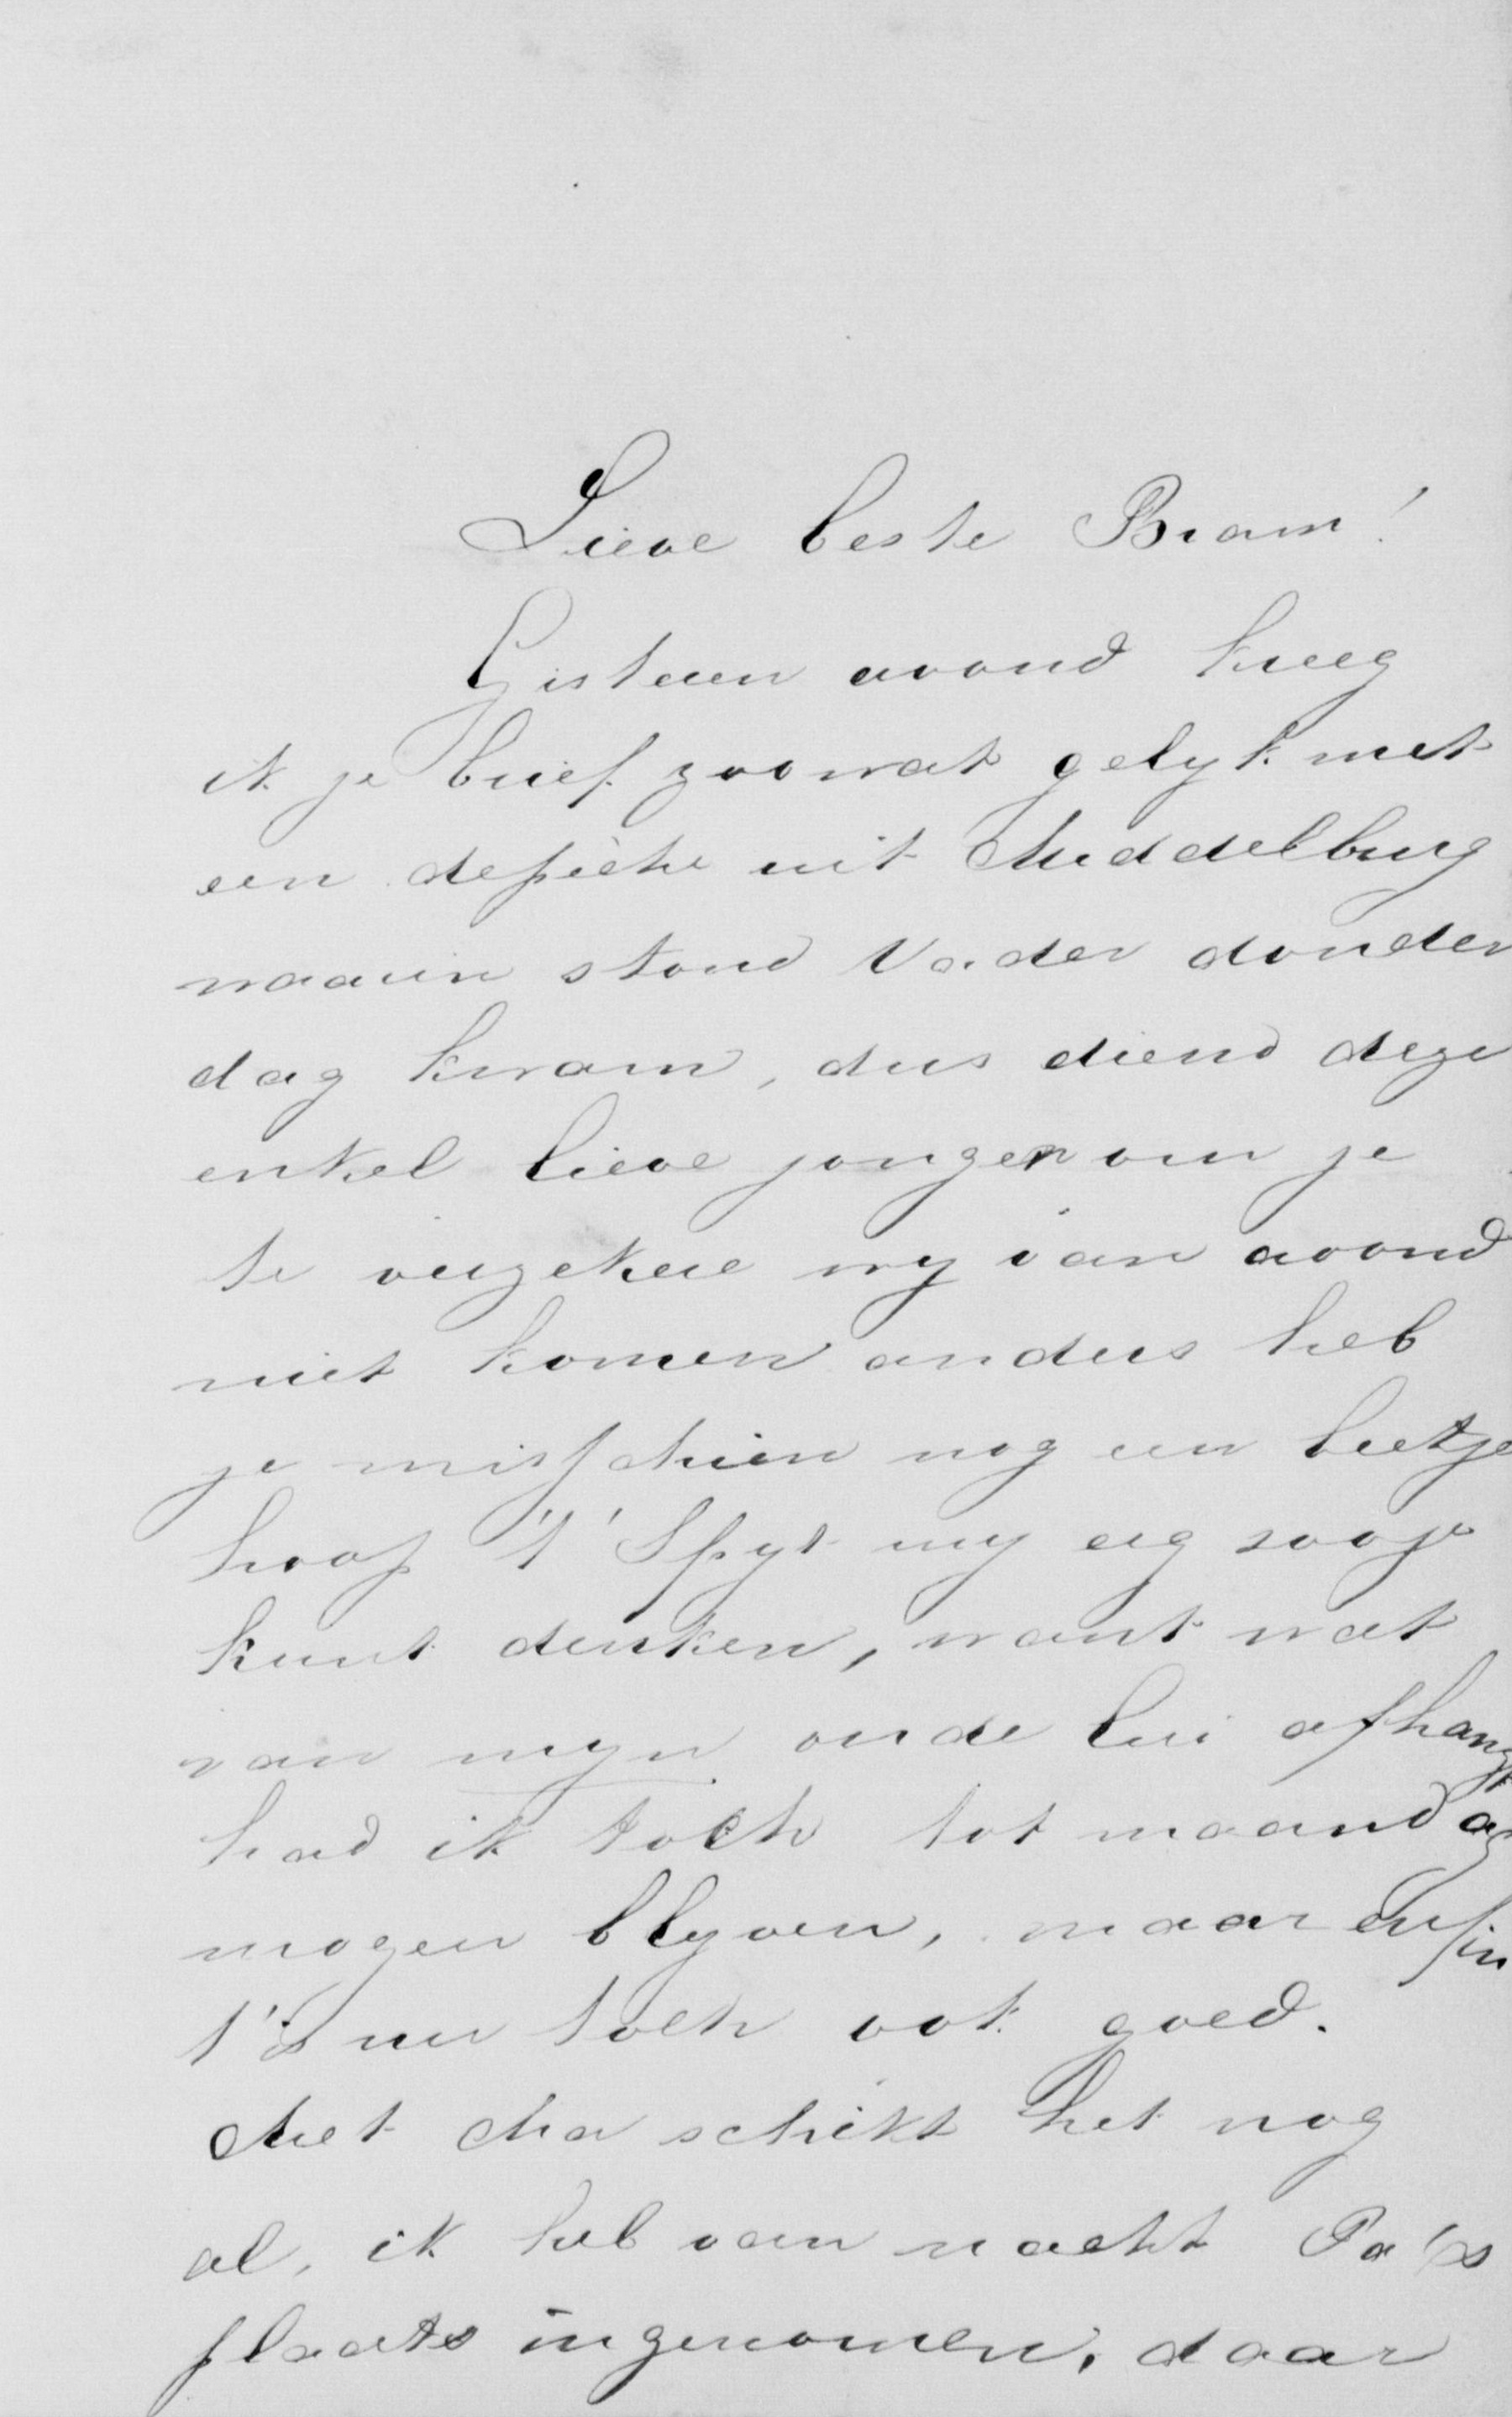 Lieve beste Bram!
Gisteren avond kreeg
ik je brief zoowat gelyk met
een depèche uit Middelburg
waarin stond Vader donder
dag kwam, dus diend deze
enkel lieve jongen om je
te verzekere wy van avond
niet komen anders heb
je misschien nog een beetje
hoop 't Spyt my erg zooje
kunt denken, want wat
van myn oude lui afhangt
had ik toch tot maandag
mogen blyven, maar enfin
t'is nu toch ook goed.
Met Ma schikt het nog
al, ik heb van nacht Pa's
plaats ingenomen, daar